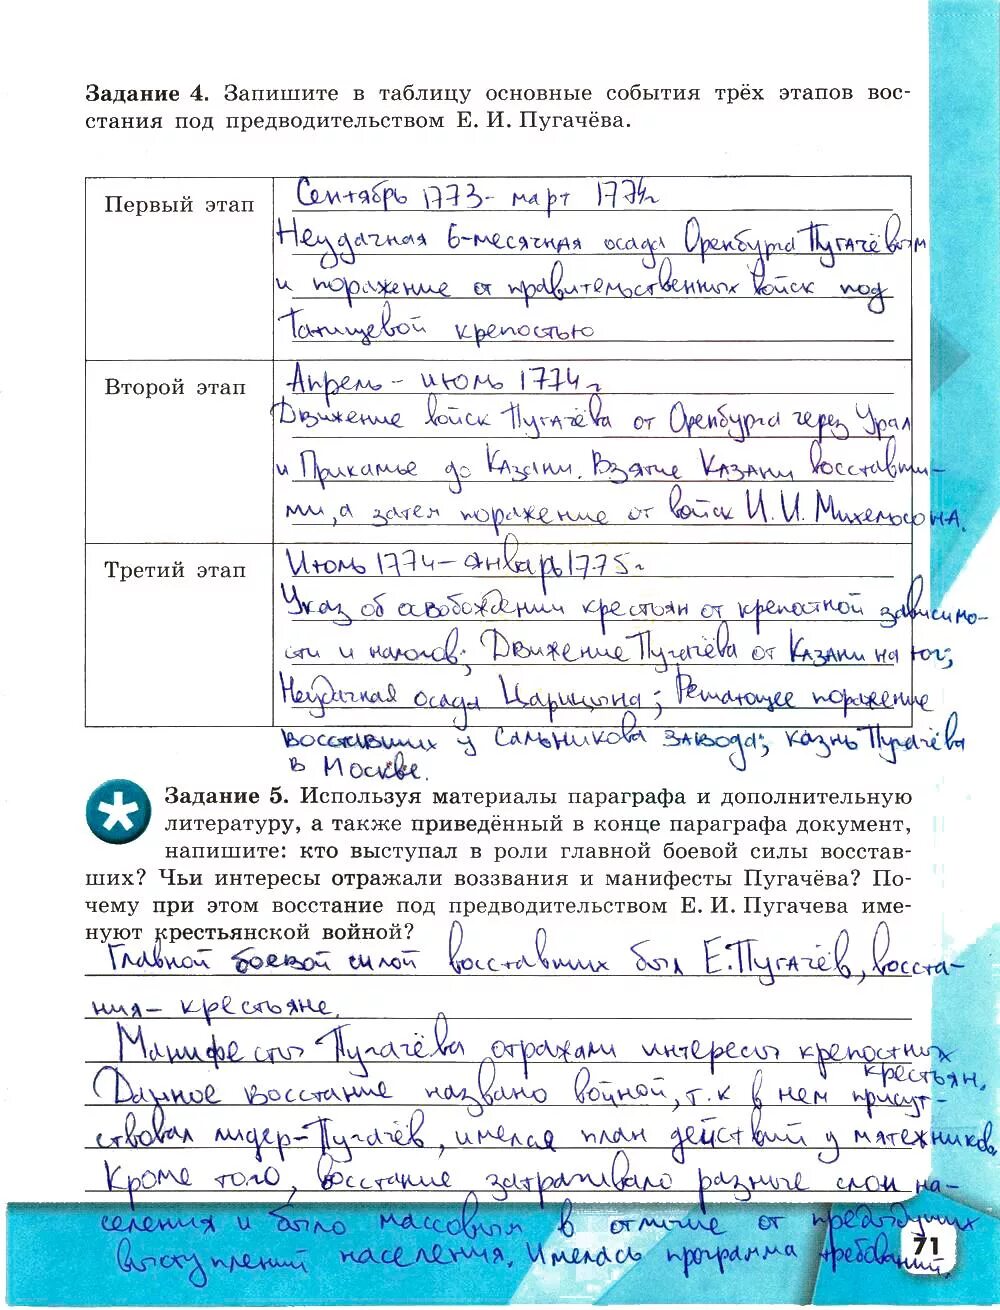 Задание 4. Запишите в таблицу основные события трёх этапов вос-
стания под предводительством Е. И. Пугачёва.
Первый этап
Сентябрь 1773- март 1774г
Неудачная 6-месячная осада Оренбурга Пугачёвым
и поражение от правительственных войск под
Татищевой крепостью
Второй этап
Апрель - июль 1774 г
Движение войск Пугачёва от Оренбурга через Урал
и Прикамье до Казани. Взятие Казани восставши-
ми, а затем поражение от войск И. И. Михельсона.
Третий этап
Июль 1774 - январь 1775 г
Указ об освобождении крестьян от крепостной зависимо-
сти и налогов; Движение Пугачёва от Казани на юг;
Неудачная осада Царицына; Решающее поражение
восставших у Сальникова завода; казнь Пугачёва
в Москве.
Задание 5. Используя материалы параграфа и дополнительную
литературу, а также приведённый в конце параграфа документ,
напишите: кто выступал в роли главной боевой силы восстав-
ших? Чьи интересы отражали воззвания и манифесты Пугачёва? По-
чему при этом восстание под предводительством Е. И. Пугачева име-
нуют крестьянской войной?
Главной боевой силой восставших был Е. Пугачёв, восста-
ния - крестьяне.
Манифесты Пугачёва отражали интересы крепостных
крестьян.
Данное восстание названо войной, т.к в нем присут-
ствовал лидер - Пугачёв, имелся план действий у мятежников.
Кроме того, восстание затрагивало разные слои на-
селения и было массовым в отличие от предыдущих
выступлений населения. Имелась программа требований.
71